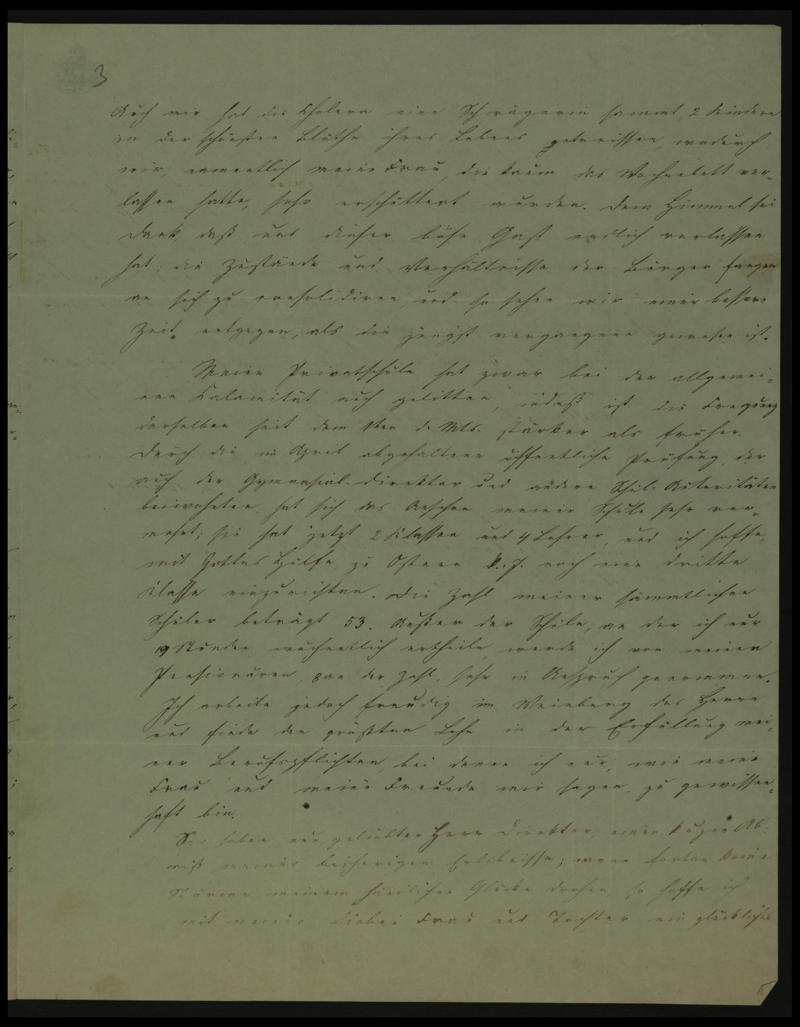 3
Auch mir hat die Cholera eine Schwägerin sammt 2 Kindern
in der schönsten Blüthe ihres Lebens entrissen, wodurch
wir, namentlich meine Frau, die kaum das Wochenbett ver-
lassen hatte, sehr erschüttert wurden. Dem Himmel sei
Dank daß uns dieser böse Gast endlich verlassen
hat; die Zustände und Verhältnisse der Bürger fangen
an sich zu consolidiren, und so sehen wir einer bessern
Zeit entgegen, als die jüngst vergangene gewesen ist.
Meine Privatschule hat zwar bei der allgemei-
nen Calamität auch gelitten, indeß ist die Frequenz
derselben seit dem d. Mts. stärker als früher.
Durch die im April abgehaltene öffentliche Prüfung, der
auch der Gymnasial-Direktor und andere Schul-Autoritäten
beiwohnten, hat sich das Ansehen meiner Schule sehr ver-
mehrt; sie hat jetzt 2 Klassen und 4 Lehrer, und ich hoffe,
mit Gottes Hülfe zu Ostern k. J. noch eine dritte
Klasse einzurichten. Die Zahl meiner sämmtlichen
Schüler beträgt 53. Außer der Schule, an der ich nur
19 Stunden wöchentlich ertheile, werde ich von meinen
Pensionären, an der Zahl, sehr in Anspruch genommen.
Ich arbeite jedoch freudig im Weinberg des Herrn
und finde den größten Lohn in der Erfüllung mei-
ner Berufspflichten, bei denen ich nur, wie meine
Frau und meine Freunde mir sagen, zu gewissen-
haft bin.
Sie haben nun, geliebter Herr Direktor, einen kurzen Ab-
riß meiner bisherigen Erlebnisse; wenn fortan keine
Stürme meinem häuslichen Glücke drohen, so hoffe ich
mit meiner lieben Frau und Tochter ein glückliches